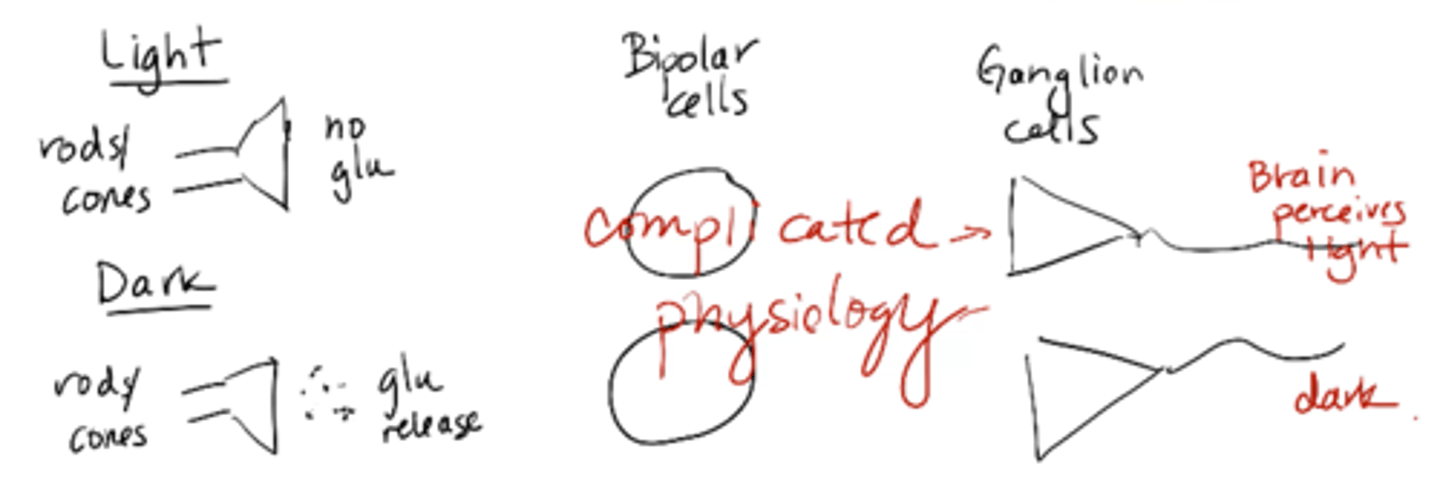 Light
rods/
cones
no
glu
Dark
rods/
cones
glu
release
Bipolar
cells
complicated →
physiology
Ganglion
cells
Brain
perceives
light
dark.